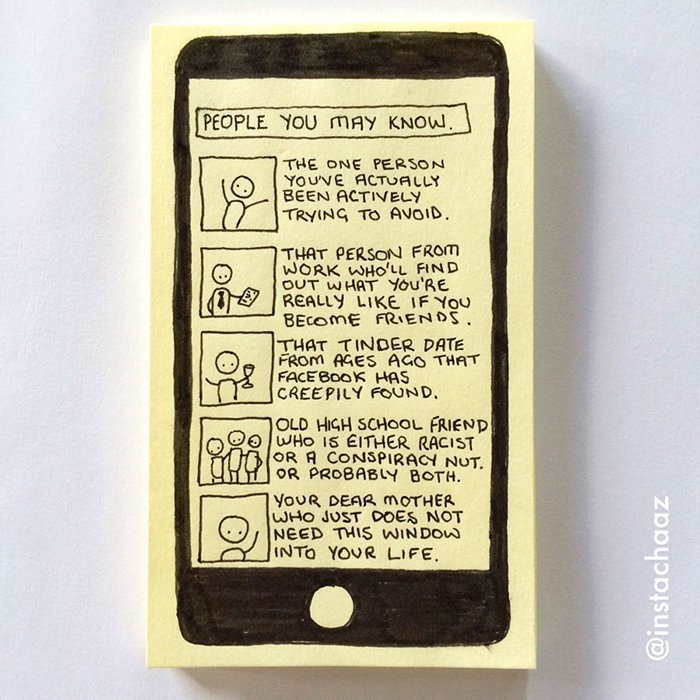 PEOPLE YOU MAY KNOW.
THE ONE PERSON
YOU'VE ACTUALLY
BEEN ACTIVELY
TRYING TO AVOID.
THAT PERSON FROM
WORK WHO'LL FIND
OUT WHAT YOU'RE
REALLY LIKE IF YOU
BECOME FRIENDS.
THAT TINDER DATE
FROM AGES AGO THAT
FACEBOOK HAS
CREEPILY FOUND.
OLD HIGH SCHOOL FRIEND
WHO IS EITHER RACIST
OR A CONSPIRACY NUT.
OR PROBABLY BOTH.
YOUR DEAR MOTHER
WHO JUST DOES NOT
NEED THIS WINDOW
INTO YOUR LIFE.
@instachaaz